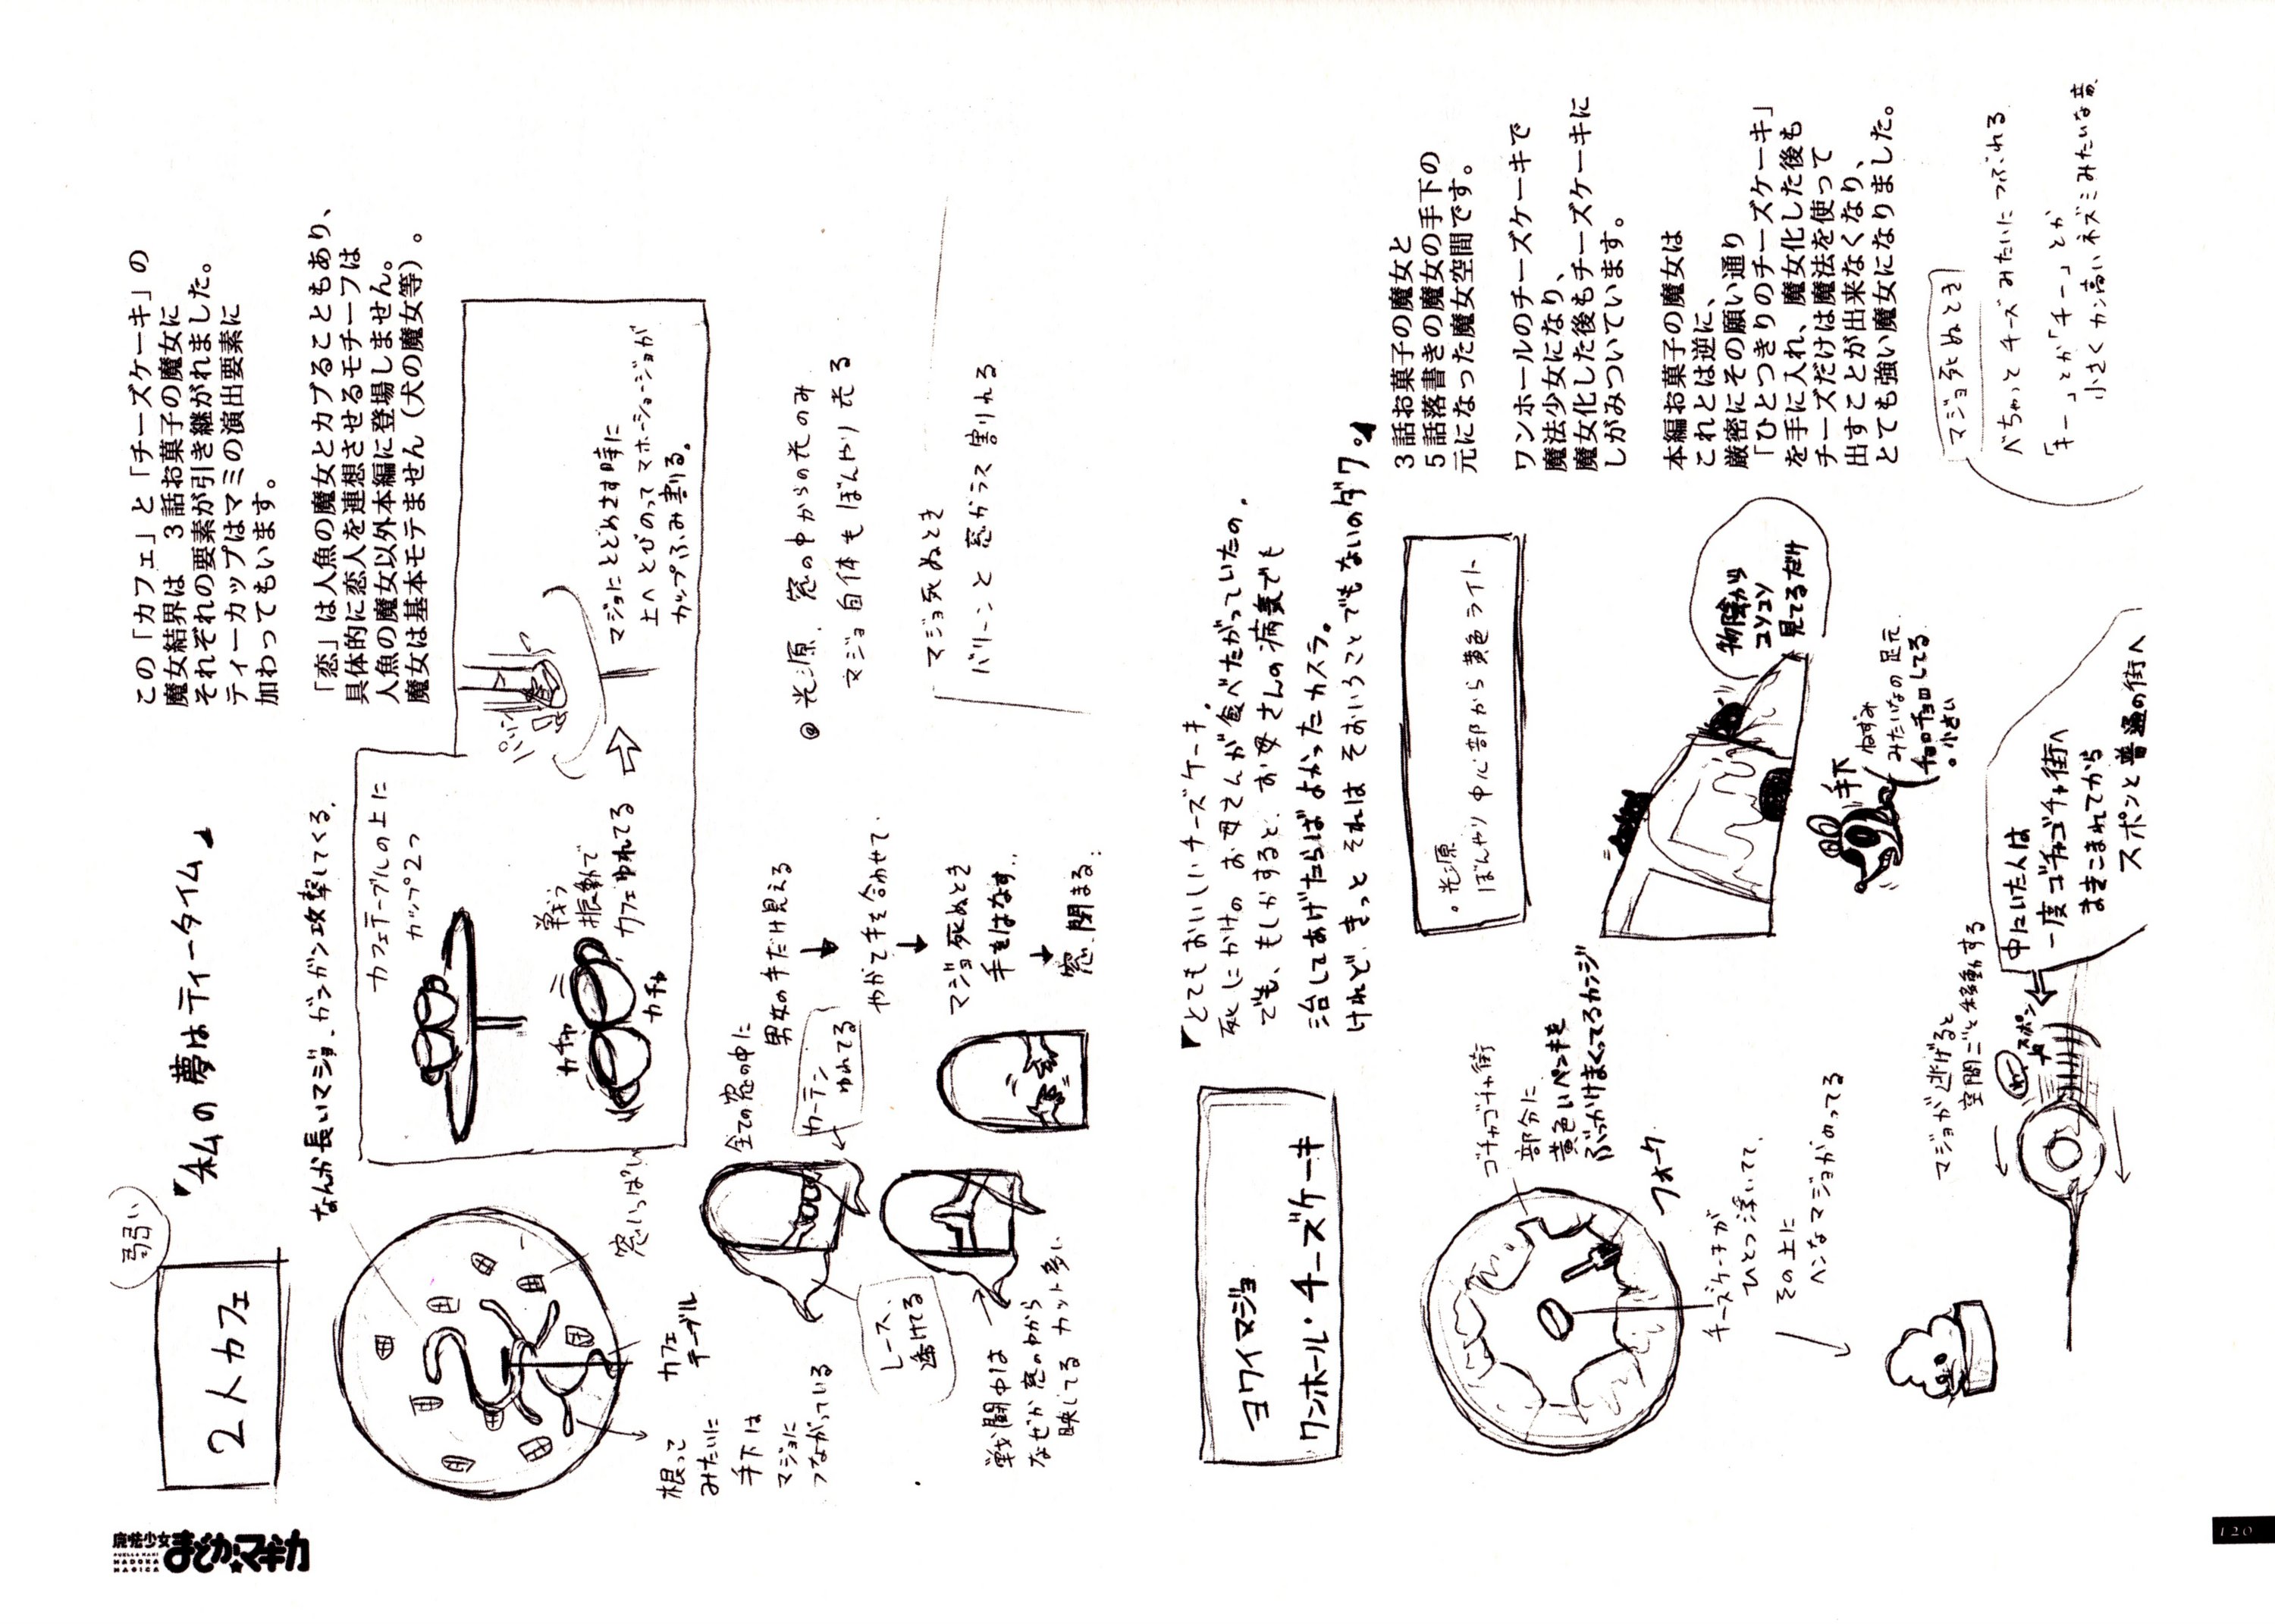 弱い
2人カフェ
『私の夢はティータイム』
なんか長いマジョ、ガンガン攻撃してくる。
この「カフェ」と「チーズケーキ」の
魔女結界は 3話お菓子の魔女に
それぞれの要素が引き継がれました。
ティーカップはマミの演出要素に
加わってもいます。
「恋」は人魚の魔女とカブることもあり、
具体的に恋人を連想させるモチーフは
人魚の魔女以外本編に登場しません。
魔女は基本モテません（犬の魔女等）。
カフェテーブルの上に
カップ2つ
戦う
振動で
カフェゆれてる
カチャ
カチャ
パリン
マジョにとどめさす時に
上へとびのってマホーショージョが
カップふみ割る。
窓いっぱい
カフェ
テーブル
根って
みたいに
手下は
マジョに
つながっている
全ての窓の中に
男女の手だけ見える
カーテン
ゆれてる
やがて手を合わせて、
マジョ死ぬとき
手をはなす..
窓、閉まる。
レース、
透けてる
戦闘中は
なぜか窓の中から
映してるカット多い
@ 光源、窓の中からの光のみ
マジョ自体もぼんやり光る
マジョ死ぬとき
バリーンと窓ガラス割れる
ヨワイマジョ
ワンホール・チーズケーキ
『とてもおいしいチーズケーキ。
死にかけのお母さんが食べたがっていたの。
でも、もしかすると、お母さんの病気でも
治してあげたらばよかったカスラ。
けれど、きっとそれはそおいうことでもないのダワ。』
3話お菓子の魔女と
5話落書きの魔女の手下の
元になった魔女空間です。
ワンホールのチーズケーキで
魔法少女になり、
魔女化した後もチーズケーキに
しがみついています。
本編お菓子の魔女は
これとは逆に、
厳密にその願い通り
「ひとつきりのチーズケーキ」
を手に入れ、魔女化した後も
チーズだけは魔法を使って
出すことが出来なくなり、
とても強い魔女になりました。
ゴチャゴチャ街
部分に
黄色いペンキを
ぶっかけまくってるカンジ
フォーク
チーズケーキが
ひとつ浮いてて、
その上に
ヘンなマジョがのってる
。光源
ぼんやり中心部から黄色ライト
物陰から
コソコソ
見てるだけ
手下
ねずみ
みたいなの足元
チョロチョロしてる
。小さい
マジョが逃げると
空間ごと移動する
スポン
中にいた人は
一度ゴチャゴチャ街へ
まきこまれてから
スポンと普通の街へ
マジョ死ぬとき
べちゃっとチーズみたいにつぶれる
「キー」とか「チー」とか
小さくカン高いネズミみたいな音、
魔法少女
まどか☆マギカ
PUELLA MAGI
MADOKA
MAGICA
120